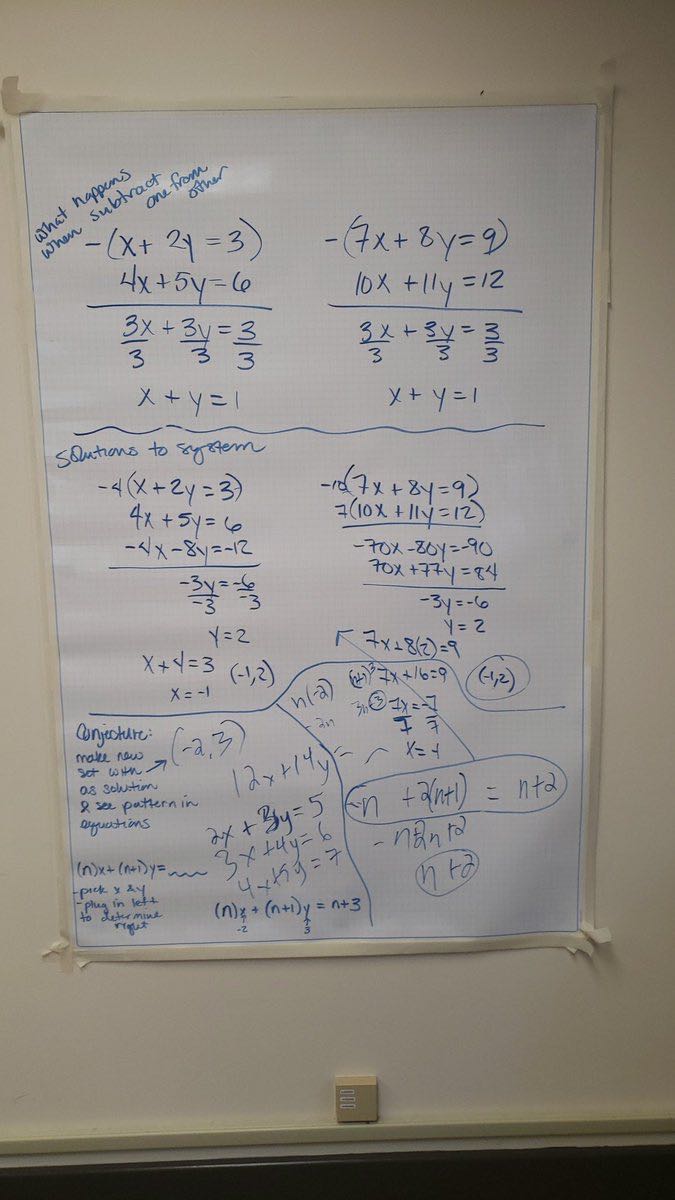 what happens
when subtract
one from
other
-(x + 2y = 3)
4x + 5y = 6
3x + 3y = 3
3 3 3
x + y = 1
-(7x + 8y = 9)
10x + 11y = 12
3x + 3y = 3
3 3 3
x + y = 1
Solutions to system
-4(x + 2y = 3)
4x + 5y = 6
-4x - 8y = -12
-3y = -6
-3 -3
y = 2
x + 4 = 3 (-1, 2)
x = -1
-10(7x + 8y = 9)
7(10x + 11y = 12)
-70x - 80y = -90
70x + 77y = 84
-3y = -6
y = 2
7x + 8(2) = 9
7x + 16 = 9
7x = -7
7 7
x = -1
(-1, 2)
Conjecture:
make new
set with
as solution
& see pattern in
equations
(-2, 3)
(n)x + (n+1)y =
- pick x & y
- plug in left
to determine
right
n(-2)
-2n
(n+1)3
3n+3
12x + 14y
2x + 3y = 5
3x + 4y = 6
4x + 5y = 7
(n)x + (n+1)y = n+3
-2 3
-n + 2(n+1) = n+2
-n+2n+2
n+2